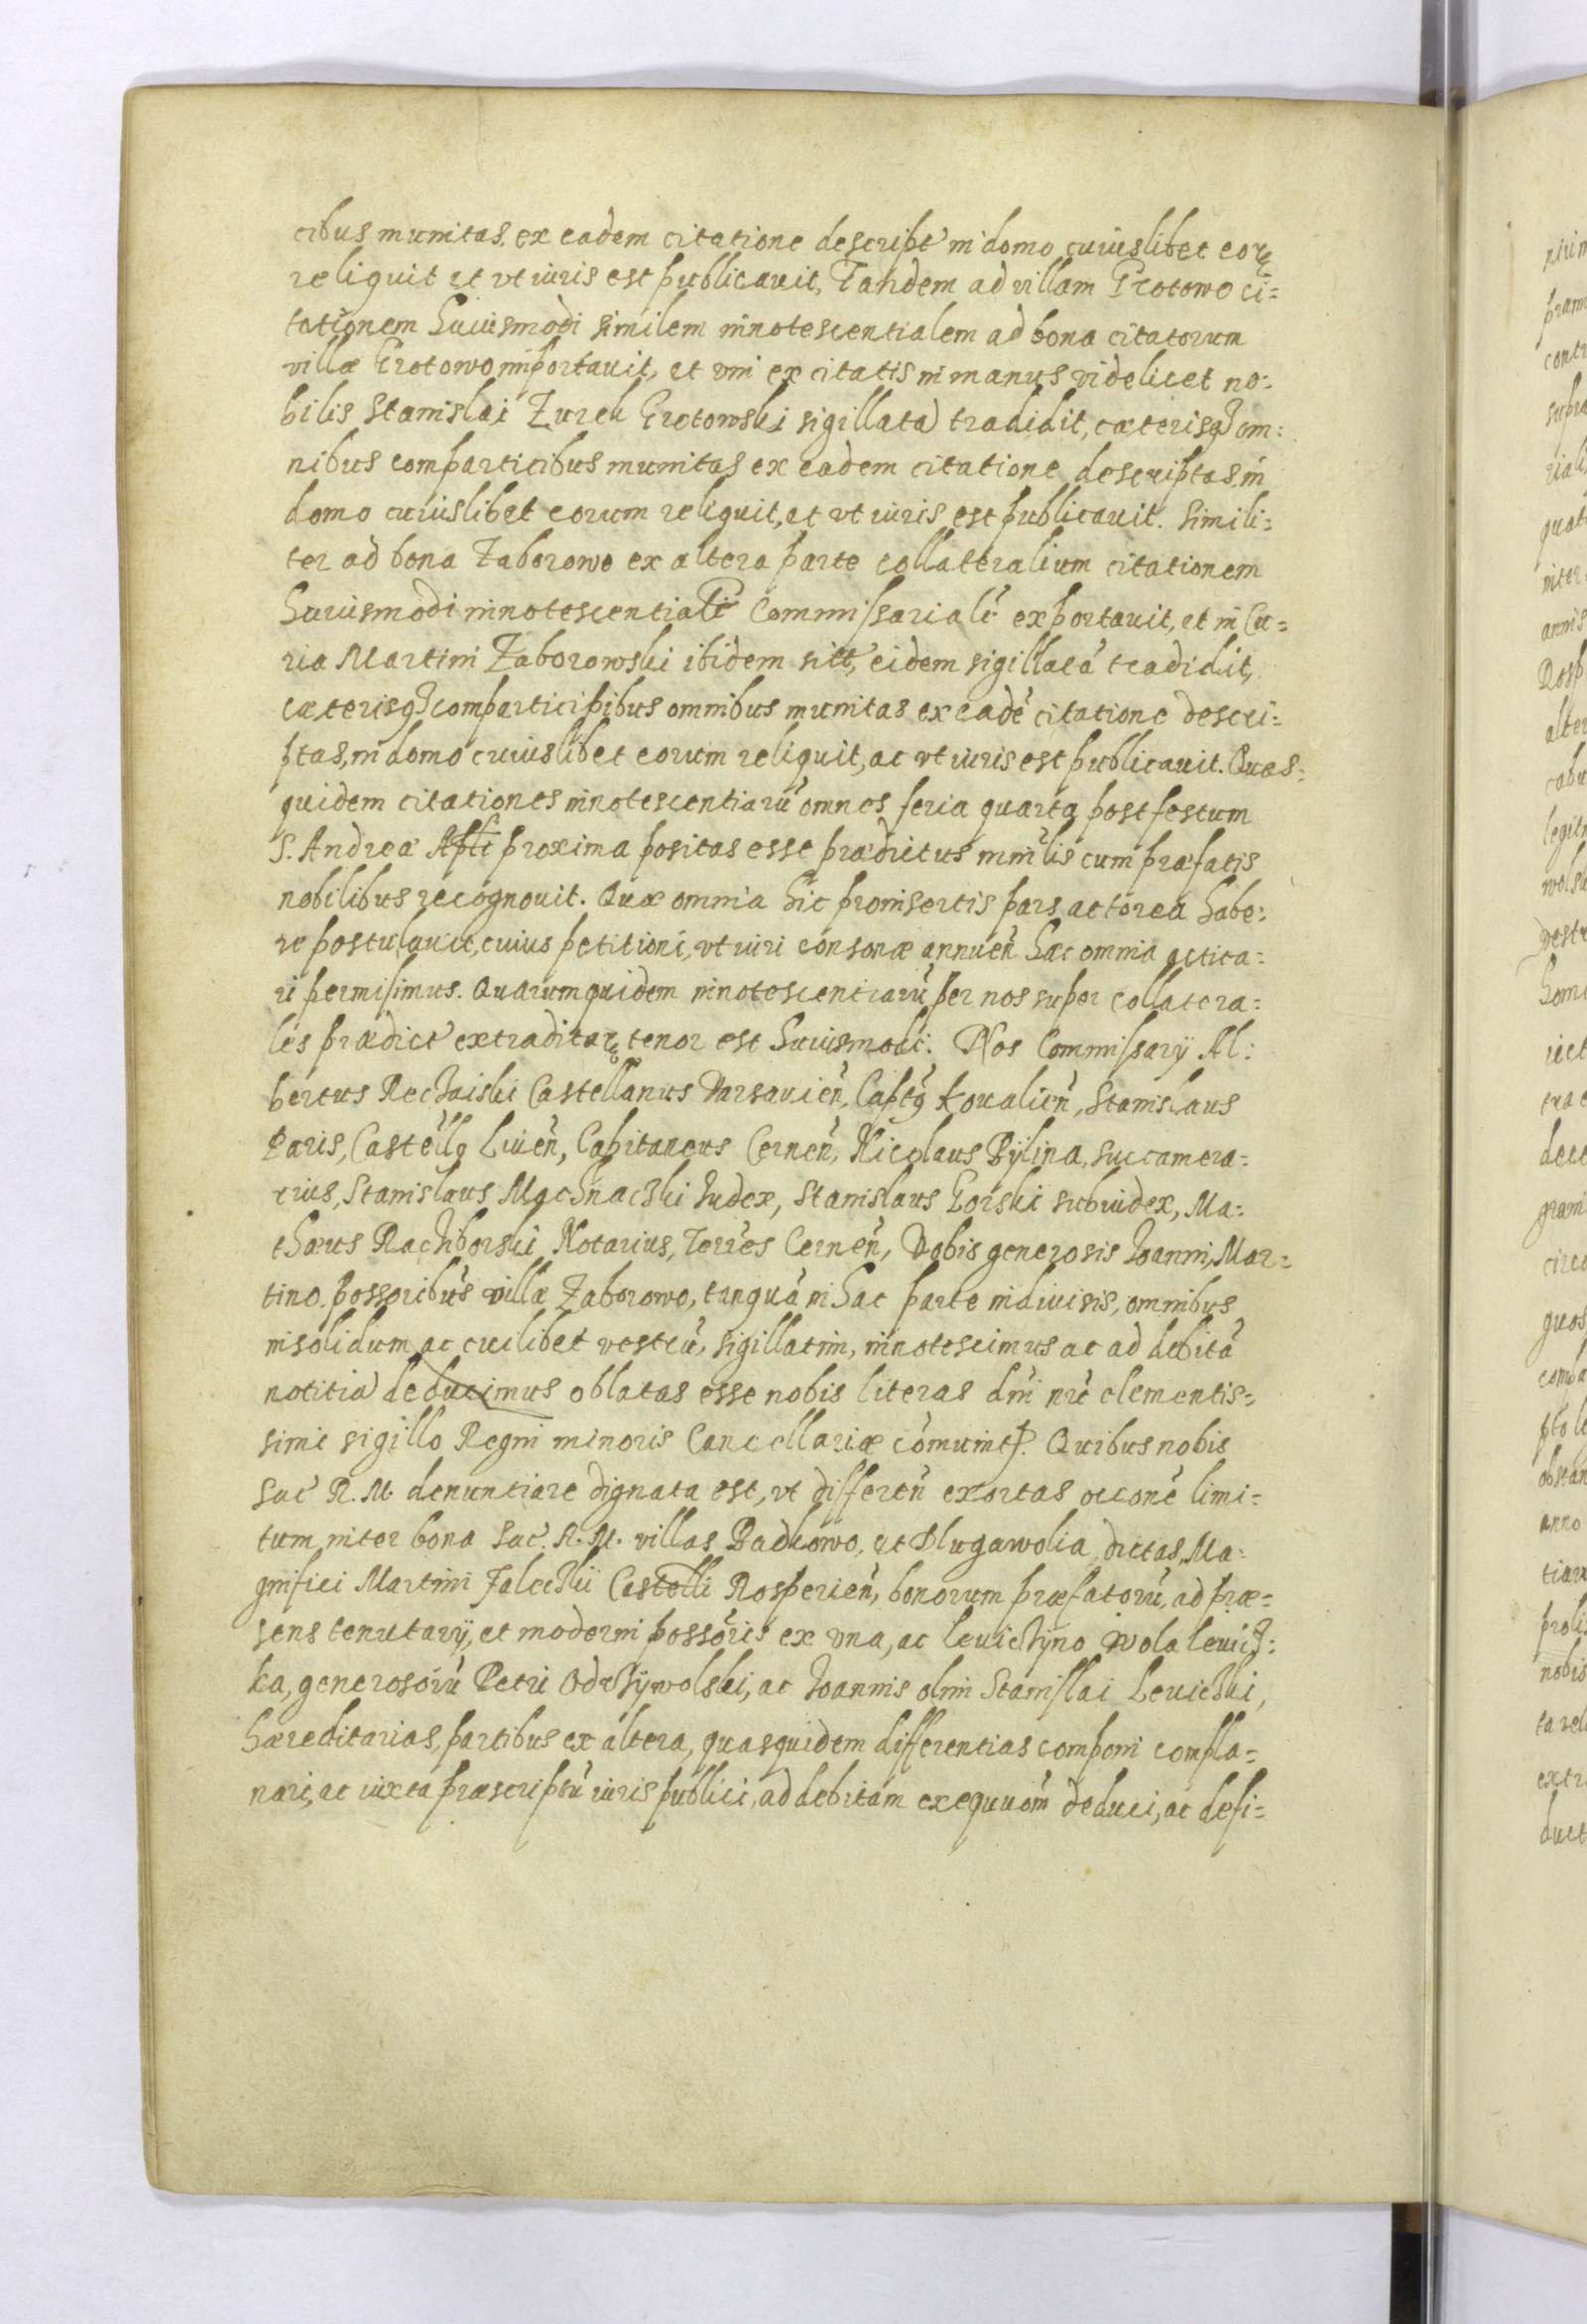 cibus munitas ex eadem citatione descript in domo cuiuslibet eorꝝ
reliquit et vt iuris est publicauit, Tandem ad villam Grotowo ci=
tationem huiusmodi similem innotescentialem ad bona citatorum
villæ Grotowo importauit, et vni ex citatis in manus videlicet no=
bilis Stanislai Zurek Grotowski sigillatã tradidit, cæterisqȝ om=
nibus comparticibus munitas ex eadem citatione descriptas in
domo cuiuslibet eorum reliquit, et vt iuris est publicauit. Simili=
ter ad bona Zaborowo ex altera parte collateralium citationem
huiusmodi innotescentialẽ Commissarialẽ exportauit, et in Cu=
ria Martini Zaborowski ibidem sitt, eidem sigillatã tradidit,
cæterisqȝ comparticipibus omnibus munitas ex eadẽ citatione descri=
ptas, in domo cuiuslibet eorum reliquit, ac vt iuris est publicauit. Quas=
quidem citationes innotescentiarũ omnes feria quarta post festum
S. Andreæ Aptĩ proxima positas esse prædictus minĩlis cum præfatis
nobilibus recognouit. Quæ omnia hic proinsertis pars actorea habe=
re postulauit, cuius petitioni, vt iuri consonæ annueñ hæc omnia actica=
ri permisimus. Quarumquidem innotescentiarũ per nos super collatera=
les prædict extraditarꝝ tenor est huiusmodi. Nos Commissarÿ Al=
bertus Rechaiski Castellanus Varsauieñ, Capt9 Koualieñ, Stanislaus
Paris, Castell9 Liueñ, Capitaneus Cerneñ, Nicolaus Bÿlina, succamera=
rius, Stanislaus Machnachki Iudex, Stanislaus Gorski subiudex, Ma=
thæus Rachborski Notarius, Terres Cerneñ, Vobis generosis Ioanni, Mar=
tino possoribus villæ Zaborowo, tanquã in hac parte indiuisis, omnibus
insolidum ac cuilibet vestrũ, sigillatim, innotescimus ac ad debitã
notitiã deducimus oblatas esse nobis literas dñi nrĩ clementis=
simi sigillo Regni minoris Cancellariæ cõmunit. Quibus nobis
Sac R. M. denuntiare dignata est, vt differeñ exortas occone limi=
tum inter bona Sac. R. M. villas Badkowo, et Dlugawolia dictas, Ma=
gnifici Martini Falechkii Castelli Rosperieñ, bonorum præfatorũ, ad præ=
sens tenutarÿ, et moderni possoris ex vna, ac Leuichÿno Wola leuicz=
ka, generosorũ Petri Odrhÿwolski, ac Ioannis olim Stanislai Leuichki,
hæreditarias, partibus ex altera, quasquidem differentias componi compla=
nari, ac iuxta præscriptũ iuris publici, ad debitam exequuõm deduci, ac defi=